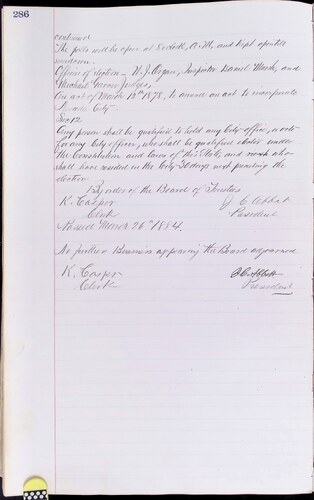 286
continued
The polls will be open at 8 o'clock, A.M., and kept open till
sundown.
Officers of election - W. J. Organ, Inspector Daniel Mack, and
Michael Garvin Judges,
One act of March 13th 1878, to amend an act to incorporate
City
Sec 12
Any person shall be qualified to hold any City office, or vote
for any City officer, who shall be qualified elector under
the Constitution and laws of this State, and which also
shall have resided in the City 30 days next preceding the
election
By order of the Board of Trustees
K. Casper J. C. Abbott
Clerk President
Passed March 26th 1884.
No further Business appearing the Board adjourned
K. Casper J. C. Abbott
Clerk President